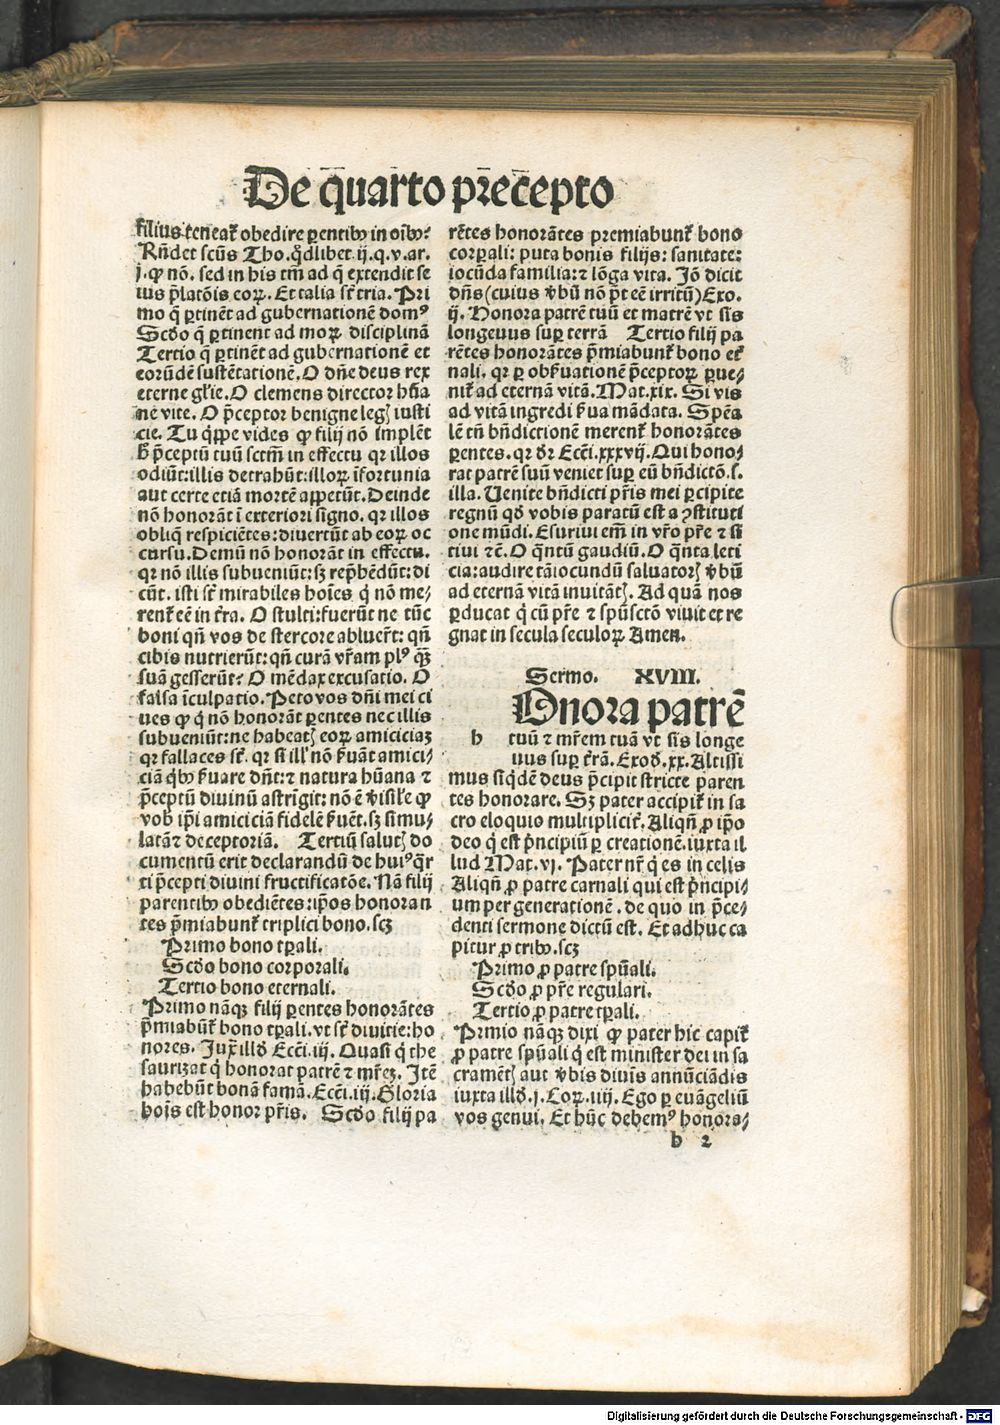 De q̄uarto p̄rec̄epto
filius teneat᷑ obedire ꝑentibꝰ in oībꝰ?
Rn̄det scūs Tho. q̄dlibet. ij. q. v. ar.
j. ꝙ nō. sed in his tm̄ ad q̄ extendit se
ius p̄latōis eoꝝ. Et talia sc̄t tria. Pri
mo q̄ ꝑtinēt ad gubernationē domꝰ
Scd̄o q̄ ꝑtinent ad moꝝ disciplinā
Tertio q̄ ꝑtinēt ad gubernationē et
eorūdē sustētationē. O dn̄e deus rex
eterne gl̄ie. O clemens director hūa
ne vite. O p̄ceptor benigne legꝭ iusti
cie. Tu q̄ppe vides ꝙ filij nō implēt
h̄ p̄ceptū tuū sctm̄ in effectu qꝛ illos
odiūt: illis detrahūt: illoꝝ īfortunia
aut certe etiā mortē appetūt. Deinde
nō honorāt ī exteriori signo. qꝛ illos
obliq̄ respiciētes: diuertūt ab eoꝝ oc
cursu. Demū nō honorāt in effectu.
qꝛ nō illis subueniūt: sꝫ rep̄hēdūt: di
cūt. isti sr̄t mirabiles hoīes q̄ nō me⸗
rent᷑ eē in t̄ra. O stulti: fuerūt ne tūc
boni qn̄ vos de stercore abluer̄t: qn̄
cibis nutrierūt: qn̄ curā vr̄am plꝰ q̄ꝫ
suā gesserūt? O mēdax excusatio. O
falsa īculpatio. Peto vos dn̄i mei ci
ues ꝙ q̄ nō honorāt ꝑentes nec illis
subueniūt: ne habeatꝭ eoꝝ amiciciaꝫ
qꝛ fallaces sr̄t. qꝛ si ill' nō ẜuāt amici⸗
ciā qͥbꝰ ẜuare dn̄t: ⁊ natura hūana ⁊
p̄ceptū diuinū astrīgit: nō ē v̓isil̓e ꝙ
vob̄ ip̄i amiciciā fidelē ẜuēt. sꝫ simu⸗
latā ⁊ deceptoriā. Tertiū salutꝭ do
cumentū erit declarandū de huiꝰ q̄r
ti p̄cepti diuini fructificatōe. Nā filij
parentibꝰ obediētes: ip̄os honoran
tes p̄miabunt᷑ triplici bono. scꝫ
Primo bono tꝑali.
Scd̄o bono corporali.
Tertio bono eternali.
Primo nāqꝫ filij ꝑentes honorātes
p̄miabūt᷑ bono tꝑali. vt sr̄t diuitie: ho
nores. Jux̄ illd̄ Ecci̓. iij. Quasi q̄ the
saurizat q̄ honorat patrē ⁊ mr̄eꝫ. Itē
habebūt bonā famā. Ecci̓. iij. Gloria
hoīs est honor pr̄is. Scd̄o filij pa
rētes honorātes premiabunt᷑ bono
corꝑali: puta bonis filijs: sanitate:
iocūda familia: ⁊ lōga vita. Jō dicit
dn̄s (cuius v̓bū nō pt̄ eē irritū) Exo.
ij. Honora patrē tuū et matrē vt sis
longeuus suꝑ terrā Tertio filij pa
rētes honorātes p̄miabunt᷑ bono et᷑
nali. qꝛ ꝑ obẜuationē p̄ceptoꝝ ꝑue⸗
nit᷑ ad eternā vitā. Mat. xix. Si vis
ad vitā ingredi ẜua mādata. Spēa
lē tn̄ bn̄dictionē merent᷑ honorātes
ꝑentes. qꝛ dr̄ Ecci̓. xxxvij. Qui hono⸗
rat patrē suū veniet suꝑ eū bn̄dictō. s.
illa. Uenite bn̄dicti pr̄is mei ꝑcipite
regnū qd̄ vobis paratū est a ꝯstituti
one mūdi. Esuriui em̄ in vr̄o pr̄e ⁊ si
tiui ⁊c̄. O q̄ntū gaudiū. O q̄nta leti
cia: audire tā iocundū saluatorꝭ v̓bū
ad eternā vitā inuitātꝭ. Ad quā nos
ꝑducat q̄ cū pr̄e ⁊ spū sctō viuit et re
gnat in secula seculoꝝ Amen.
Sermo. XVIII.
Onora patrē
h tuū ⁊ mr̄em tuā vt sis longe
uus suꝑ t̄rā. Exod̄. xx. Altissi
mus siq̄dē deus p̄cipit stricte paren
tes honorare. Sꝫ pater accipit᷑ in sa
cro eloquio multiplicit᷑. Aliqn̄ ꝓ ip̄o
deo q̄ est p̄ncipiū ꝑ creationē. iuxta il
lud Mat. vj. Pater nr̄ q̄ es in celis
Aliqn̄ ꝓ patre carnali qui est p̄ncipi⸗
um per generationē. de quo in p̄ce⸗
denti sermone dictū est. Et adhuc ca
pitur ꝓ tribꝰ. scꝫ
Primo ꝓ patre spūali.
Scd̄o ꝓ pr̄e regulari.
Tertio ꝓ patre tꝑali.
Prmio nāqꝫ dixi ꝙ pater hic capit᷑
ꝓ patre spūali q̄ est minister dei in sa
cramētꝭ aut v̓bis diuīs annūciādis
iuxta illd̄. j. Coꝝ. iiij. Ego ꝑ euāgeliū
vos genui. Et hūc debemꝰ honora⸗
h 2
Digitalisierung gefördert durch die Deutsche Forschungsgemeinschaft - DFG